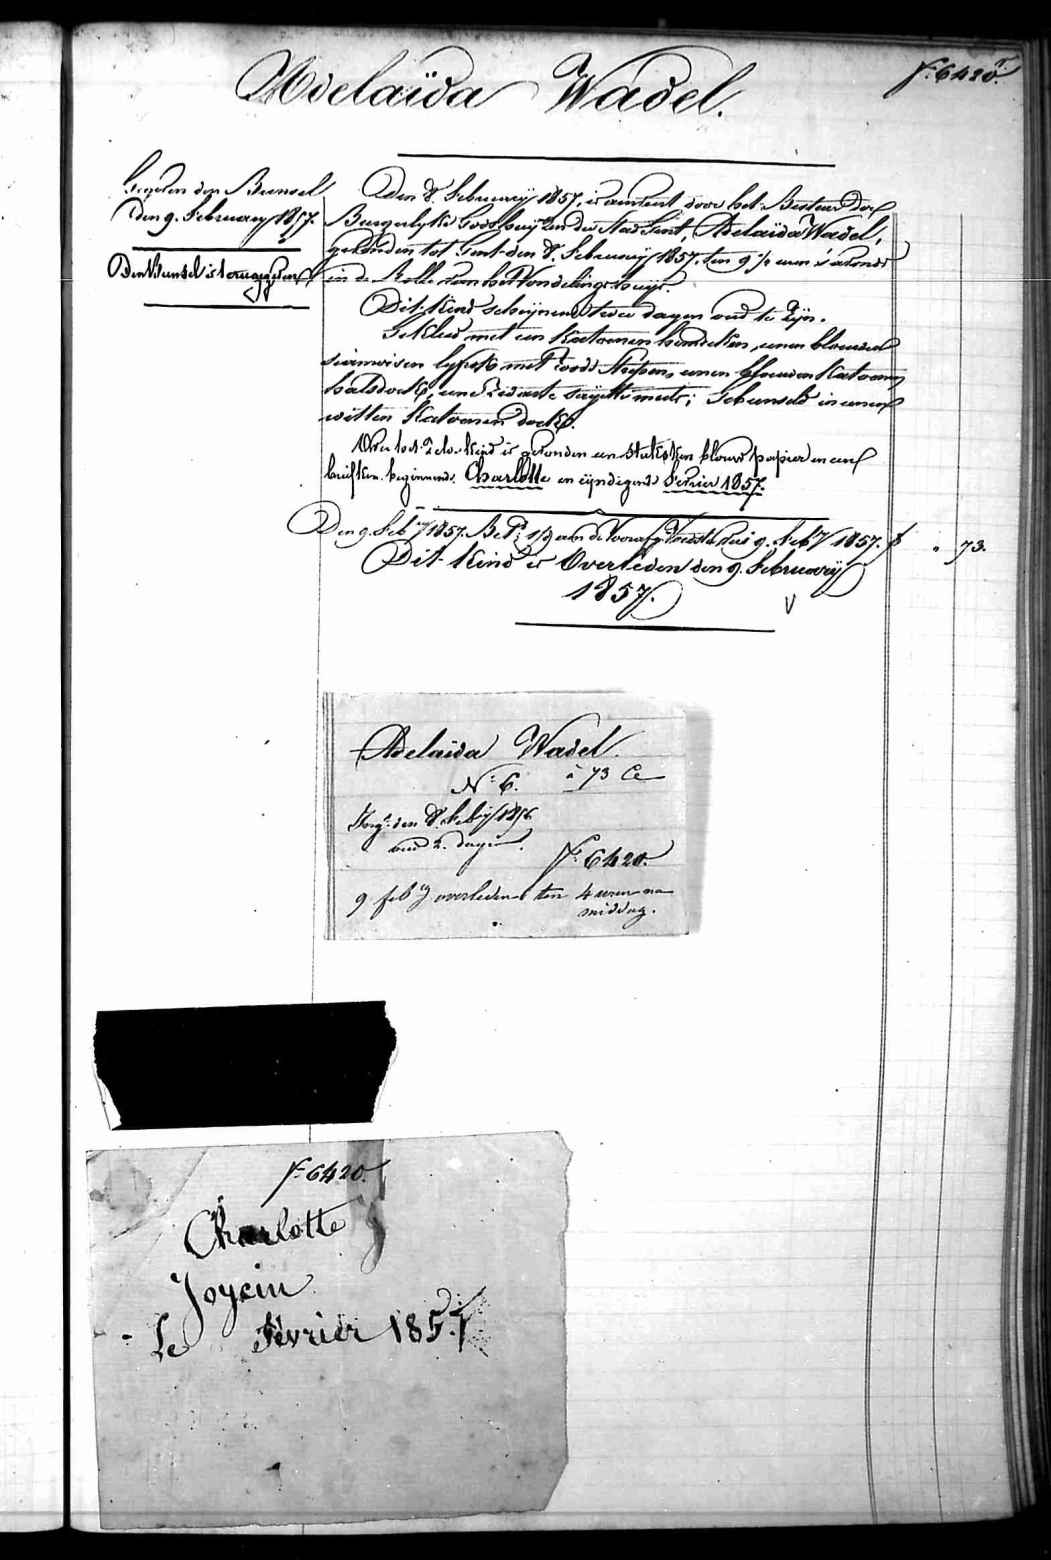 F.º 6420.
Adelaïda Wadel.
Gegeven den Bunsel
den 9. February 1857.
Den Bunsel is teruggegeven
Den 8. February 1857, is aenveert door het Bestuer der
Burgerlyke Godshuyzen der Stad Gent, Adelaïda Wadel,
gevonden tot Gent den 8. February 1857, ten 9 ½ uren s'avonds
in de Rolle van het Vondelingshuys.
Dit kind scheynende twee dagen oud te zyn.
Gekleed met een katoenen hemdeken, eenen blauwen
lyfrok met roode strepen, eenen blauwen katoenen
halsdoek, eene zwarte muts; Gebunseld in eenen
witten katoenen doek.
Over het zelve kind is gevonden een stuksken blauw papier en een
briefken beginnende Charlotte en eyndigende Fevrier 1857.
Den 9. Feby 1857. 9. Feby 1857. F " 73.
Dit kind is Overleden den 9. February
1857.
Adelaïda Wadel.
Nº 6. à 73 Ce
Ingº den 8. Feby 1857
oud 2. dagen.
Fº 6420.
9 feby overleden ten 4 uren na
middag.
Fº 6420.
Charlotte
Joyein
Le Février 1857